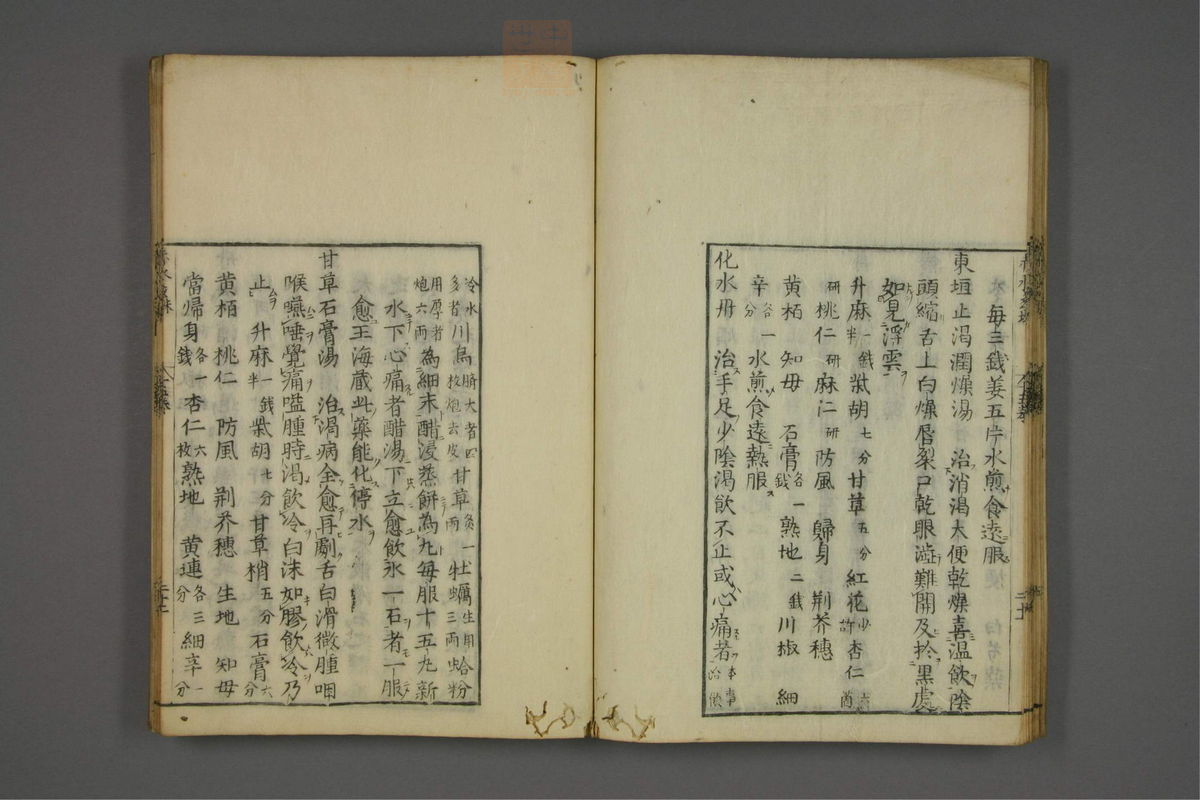 每三錢姜五片水煎食遠服
東垣止渴潤燥湯 治消渴大便乾燥喜溫飲陰
頭縮舌上白燥唇裂口乾眼澁難開及扵黒處
如見浮雲
升麻一錢半 柴胡七分 甘草五分 紅花少許 杏仁
研 桃仁研 麻仁研 防風 歸身 荆芥穗
黄栢 知母 石膏各一錢 熟地二錢 川椒 細
辛各一分 水煎食遠熱服
化水丹 治手足少陰渴飲不止或心痛者本事治
冷水多者 川烏臍大者四枚炮去皮 甘草炙一兩 牡蠣生用三兩 蛤粉
用厚者炮六兩 為細末醋浸蒸餅為丸每服十五丸新
水下心痛者醋湯下立愈飲氷一石者一服
愈王海蔵此藥能化停水
甘草石膏湯 治渴病全愈再劇舌白滑微腫咽
喉嚥唾覺痛嗌腫時渴飲冷白沫如膠飲冷乃
止 升麻一錢半 柴胡七分 甘草梢五分 石膏六分
黄栢 桃仁 防風 荆芥穗 生地 知母
當歸身各一錢 杏仁六枚 熟地 黄連各三分 細辛一分